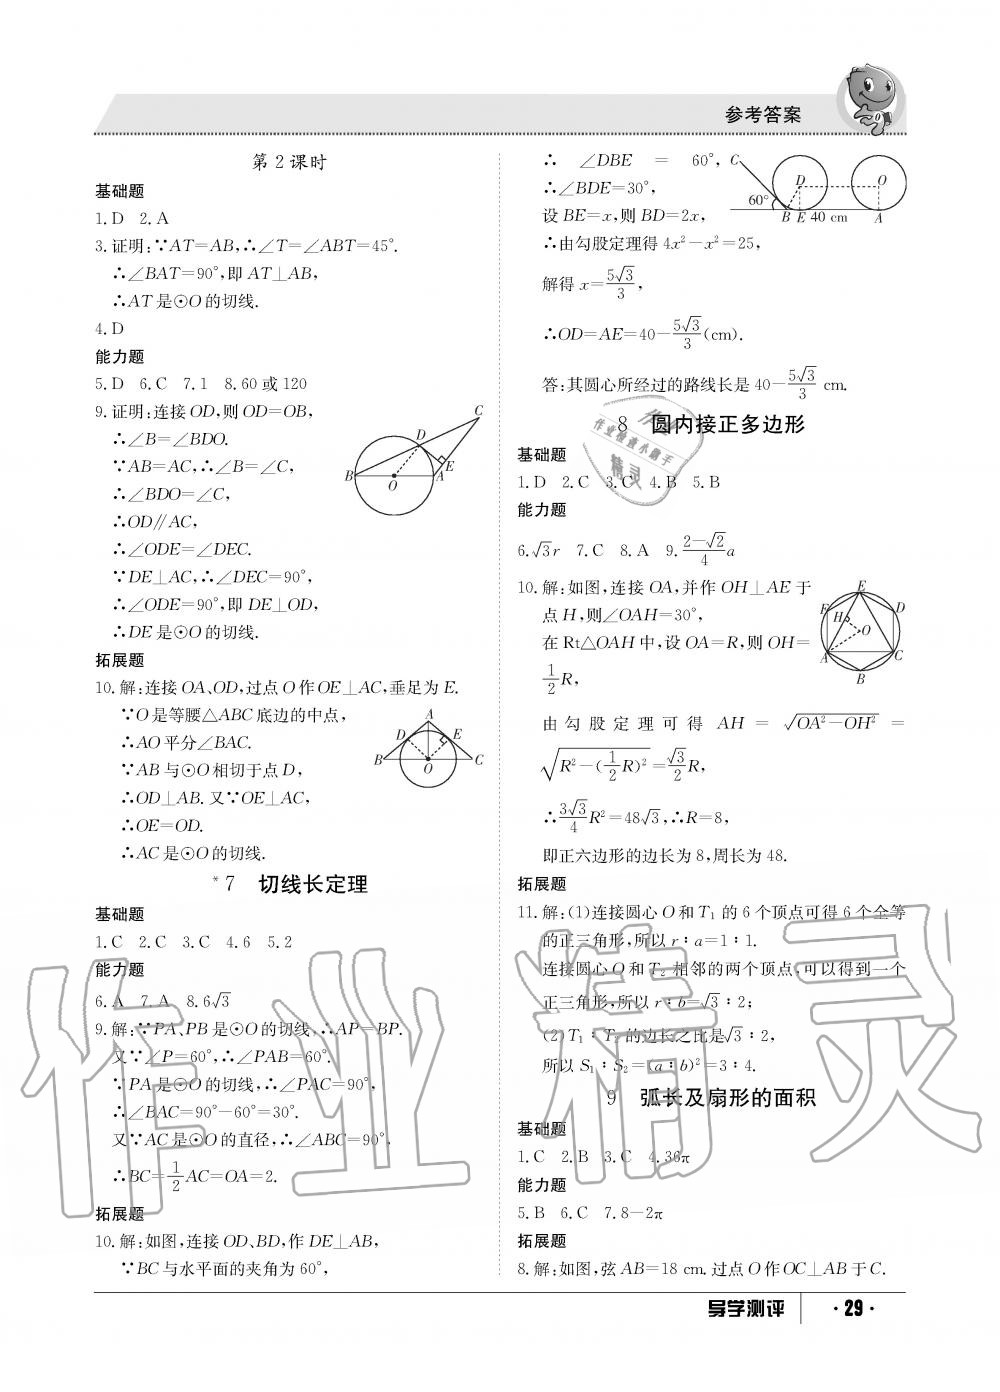 参考答案
第2课时
基础题
1.D 2.A
3.证明:∵AT=AB,∴∠T=∠ABT=45°.
∴∠BAT=90°,即AT⊥AB,
∴AT是⊙O的切线.
4.D
能力题
5.D 6.C 7.1 8.60或120
9.证明:连接OD,则OD=OB,
∴∠B=∠BDO.
∵AB=AC,∴∠B=∠C,
∴∠BDO=∠C,
∴OD∥AC,
∴∠ODE=∠DEC.
∵DE⊥AC,∴∠DEC=90°,
∴∠ODE=90°,即DE⊥OD,
∴DE是⊙O的切线.
C
D
E
B
O
A
拓展题
10.解:连接OA、OD,过点O作OE⊥AC,垂足为E.
∵O是等腰△ABC底边的中点,
∴AO平分∠BAC.
∵AB与⊙O相切于点D,
∴OD⊥AB.又∵OE⊥AC,
∴OE=OD.
∴AC是⊙O的切线.
A
D
E
B
O
C
*7 切线长定理
基础题
1.C 2.C 3.C 4.6 5.2
能力题
6.A 7.A 8.6√3
9.解:∵PA、PB是⊙O的切线,∴AP=BP.
又∵∠P=60°,∴∠PAB=60°.
∵PA是⊙O的切线,∴∠PAC=90°,
∴∠BAC=90°-60°=30°.
又∵AC是⊙O的直径,∴∠ABC=90°,
∴BC=1/2AC=OA=2.
拓展题
10.解:如图,连接OD、BD,作DE⊥AB,
∵BC与水平面的夹角为60°,
∴∠DBE=60°,
∴∠BDE=30°,
设BE=x,则BD=2x,
∴由勾股定理得4x²-x²=25,
解得x=5√3/3,
∴OD=AE=40-5√3/3(cm).
答:其圆心所经过的路线长是40-5√3/3 cm.
C
D
O
60°
B E 40 cm A
8 圆内接正多边形
基础题
1.D 2.C 3.C 4.B 5.B
能力题
6.√3r 7.C 8.A 9.(2-√2)/4 a
10.解:如图,连接OA,并作OH⊥AE于
点H,则∠OAH=30°,
在Rt△OAH中,设OA=R,则OH=
1/2R,
由勾股定理可得AH=√(OA²-OH²)=
√(R²-(1/2R)²)=√3/2R,
∴3√3/4R²=48√3,∴R=8,
即正六边形的边长为8,周长为48.
E
F
D
H
O
A
C
B
拓展题
11.解:(1)连接圆心O和T₁的6个顶点可得6个全等
的正三角形,所以r∶a=1∶1.
连接圆心O和T₂相邻的两个顶点,可以得到一个
正三角形,所以r∶b=√3∶2;
(2)T₁∶T₂的边长之比是√3∶2,
所以S₁∶S₂=(a∶b)²=3∶4.
9 弧长及扇形的面积
基础题
1.C 2.B 3.C 4.36π
能力题
5.B 6.C 7.8-2π
拓展题
8.解:如图,弦AB=18 cm.过点O作OC⊥AB于C.
导学测评
·29·
作业精灵
作业检查小助手
精灵